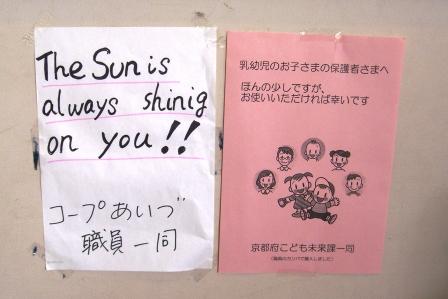 The Sun is
always shinig
on you!!
コープあいづ
職員一同
乳幼児のお子さまの保護者さまへ
ほんの少しですが、
お使いいただければ幸いです
京都府こども未来課一同
(職員のカンパで購入しました)